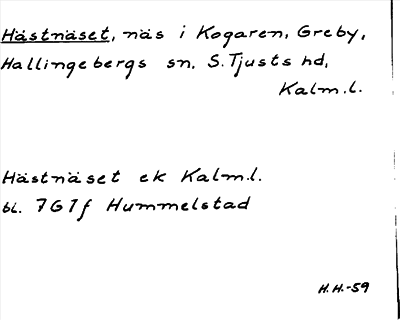 Hästnäset, näs i Kogaren, Greby,
Hallingebergs sn, S. Tjusts hd,
Kalm.l.
Hästnäset ek Kalm.l.
bl. 7G7f Hummelstad
H.H.-59